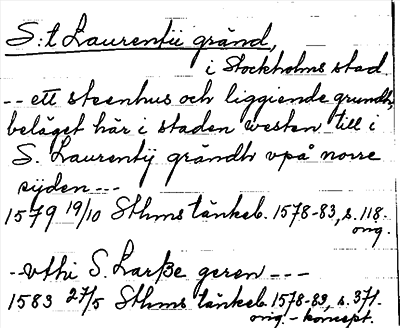 S:t Laurentii gränd,
i Stockholms stad
-- ett steenhus och liggiende grundh,
beläget här i staden westen till i
S. Laurentij grändh vpå norre
sijden ---
1579 19/10 Sthms tänkeb. 1578-83, s. 118.
orig.
- vthi S. Larße geren ---
1583 27/5 Sthms tänkeb. 1578-83, s. 371.
orig. - koncept.